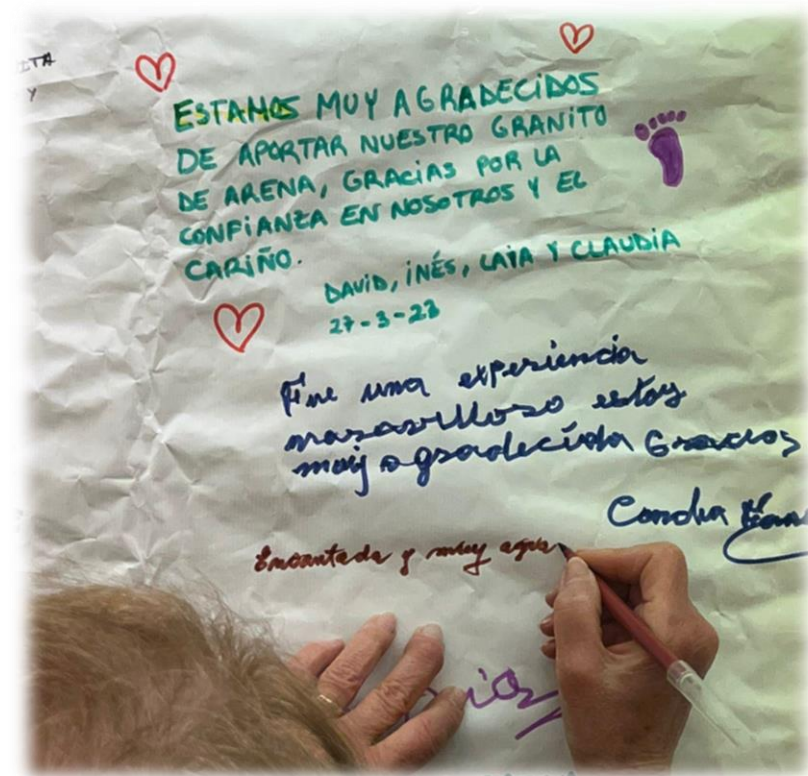 ITA
Y
ESTAMOS MUY AGRADECIDOS
DE APORTAR NUESTRO GRANITO
DE ARENA, GRACIAS POR LA
CONFIANZA EN NOSOTROS Y EL
CARIÑO.
DAVID, INÉS, LAIA Y CLAUDIA
27-3-23
Fue una experiencia
maravilloso estoy
muy agradecida Gracias
Concha
Encantada y muy agra